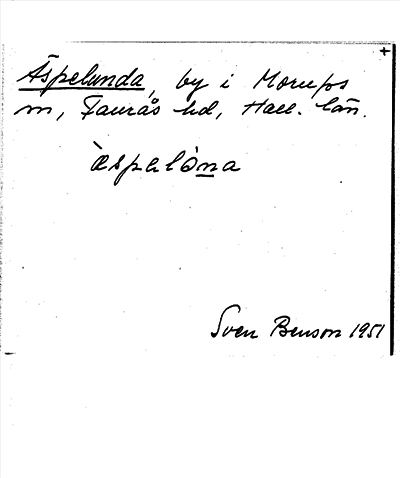 +
Äspelunda, by i Morups
sn, Faurås hd, Hall. län.
àspalòna
Sven Benson 1951